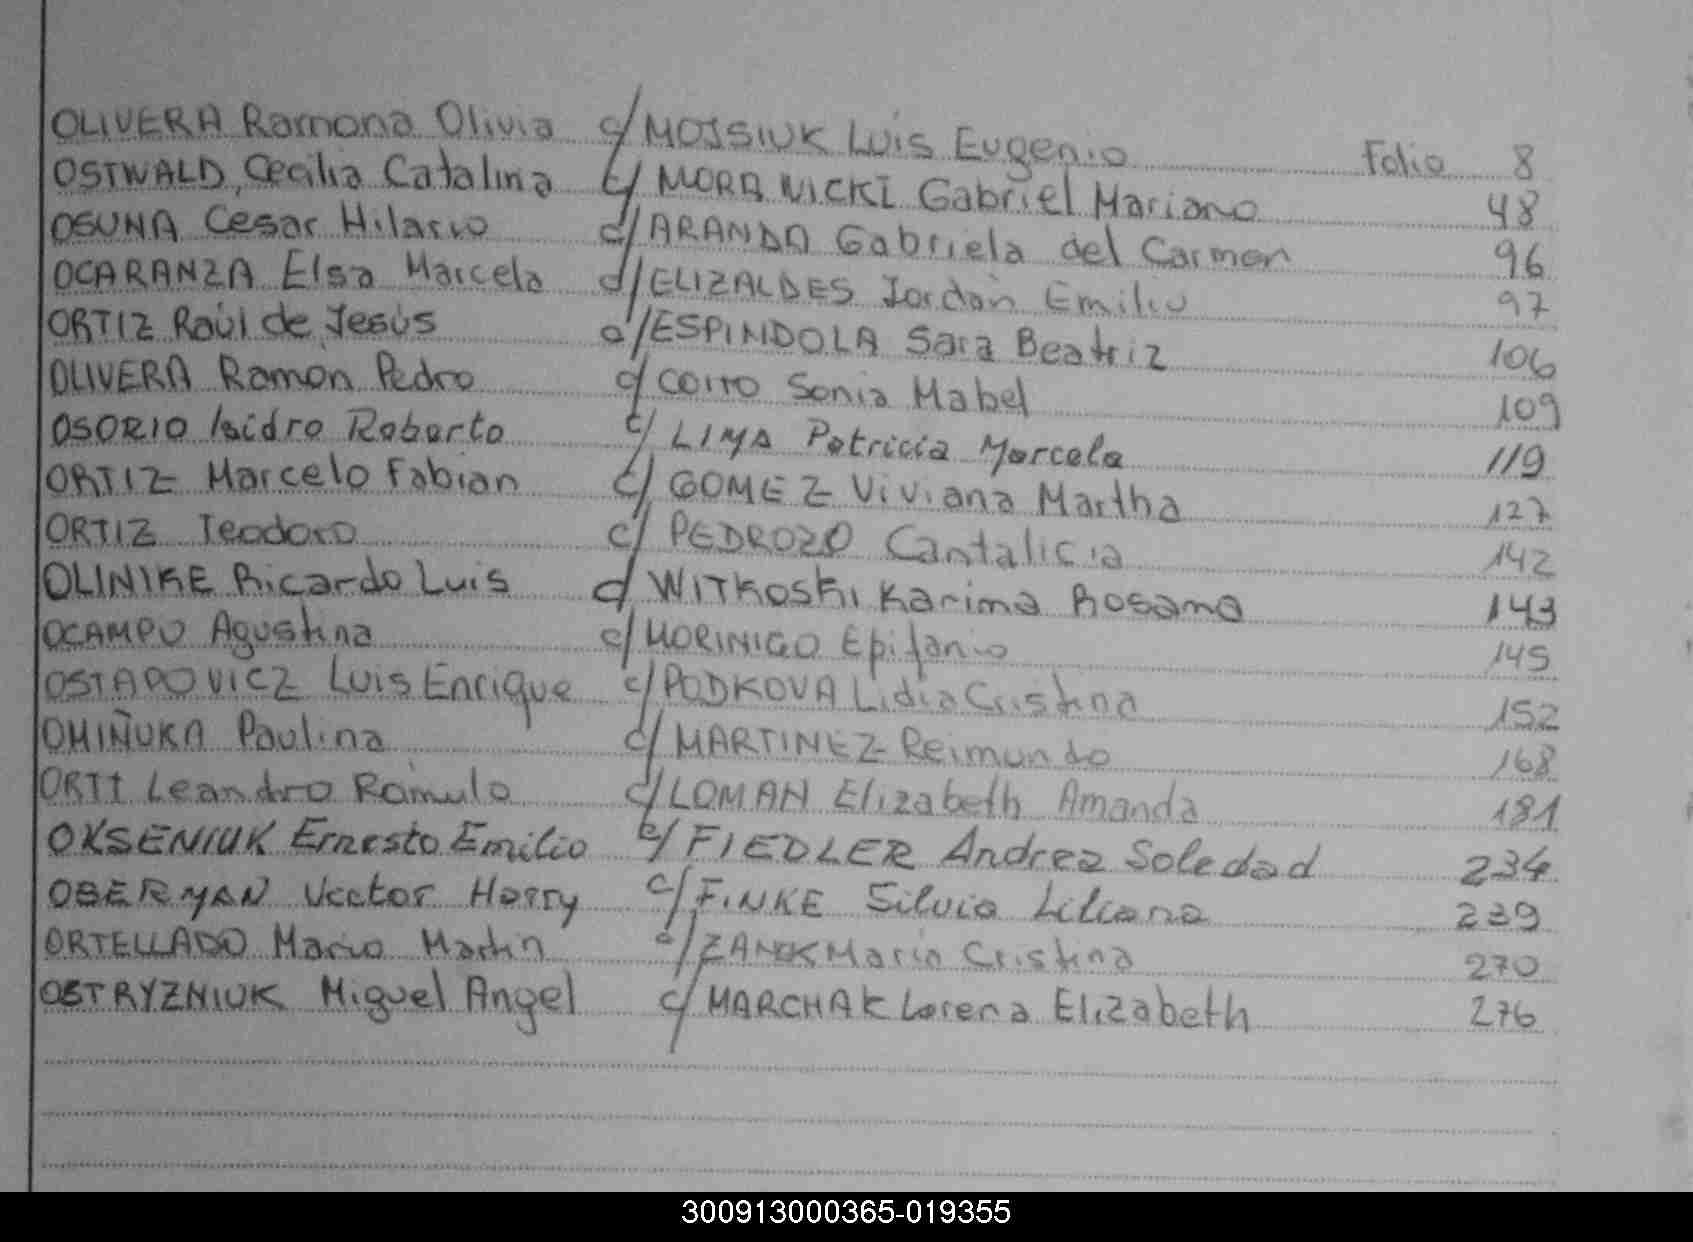 OLIVERA Ramona Olivia c/ MOJSIUK Luis Eugenio Folio 8
OSTWALD, Cecilia Catalina c/ MORAWICKI Gabriel Mariano 48
OSUNA Cesar Hilario c/ ARANDA Gabriela del Carmen 96
OCARANZA Elsa Marcela c/ ELIZALDES Jordán Emilio 97
ORTIZ Raúl de Jesús c/ ESPINDOLA Sara Beatriz 106
OLIVERA Ramón Pedro c/ COITO Sonia Mabel 109
OSORIO Isidro Roberto c/ LIMA Patricia Marcela 119
ORTIZ Marcelo Fabian c/ GOMEZ Viviana Martha 127
ORTIZ Teodoro c/ PEDROZO Cantalicia 142
OLINIKE Ricardo Luis c/ WITKOSKI Karima Rosana 143
OCAMPO Agustina c/ MORINIGO Epifanio 145
OSTAPOVICZ Luis Enrique c/ PODKOVA Lidia Cristina 152
OMIÑUKA Paulina c/ MARTINEZ Reimundo 168
ORTT Leandro Rómulo c/ LOMAN Elizabeth Amanda 181
OKSENIUK Ernesto Emilio c/ FIEDLER Andrea Soledad 234
OBERMAN Vector Harry c/ FINKE Silvia Liliana 239
ORTELLADO Mario Martin c/ ZANEK Maria Cristina 270
OSTRYZNIUK Miguel Angel c/ MARCHAK Lorena Elizabeth 276
300913000365-019355